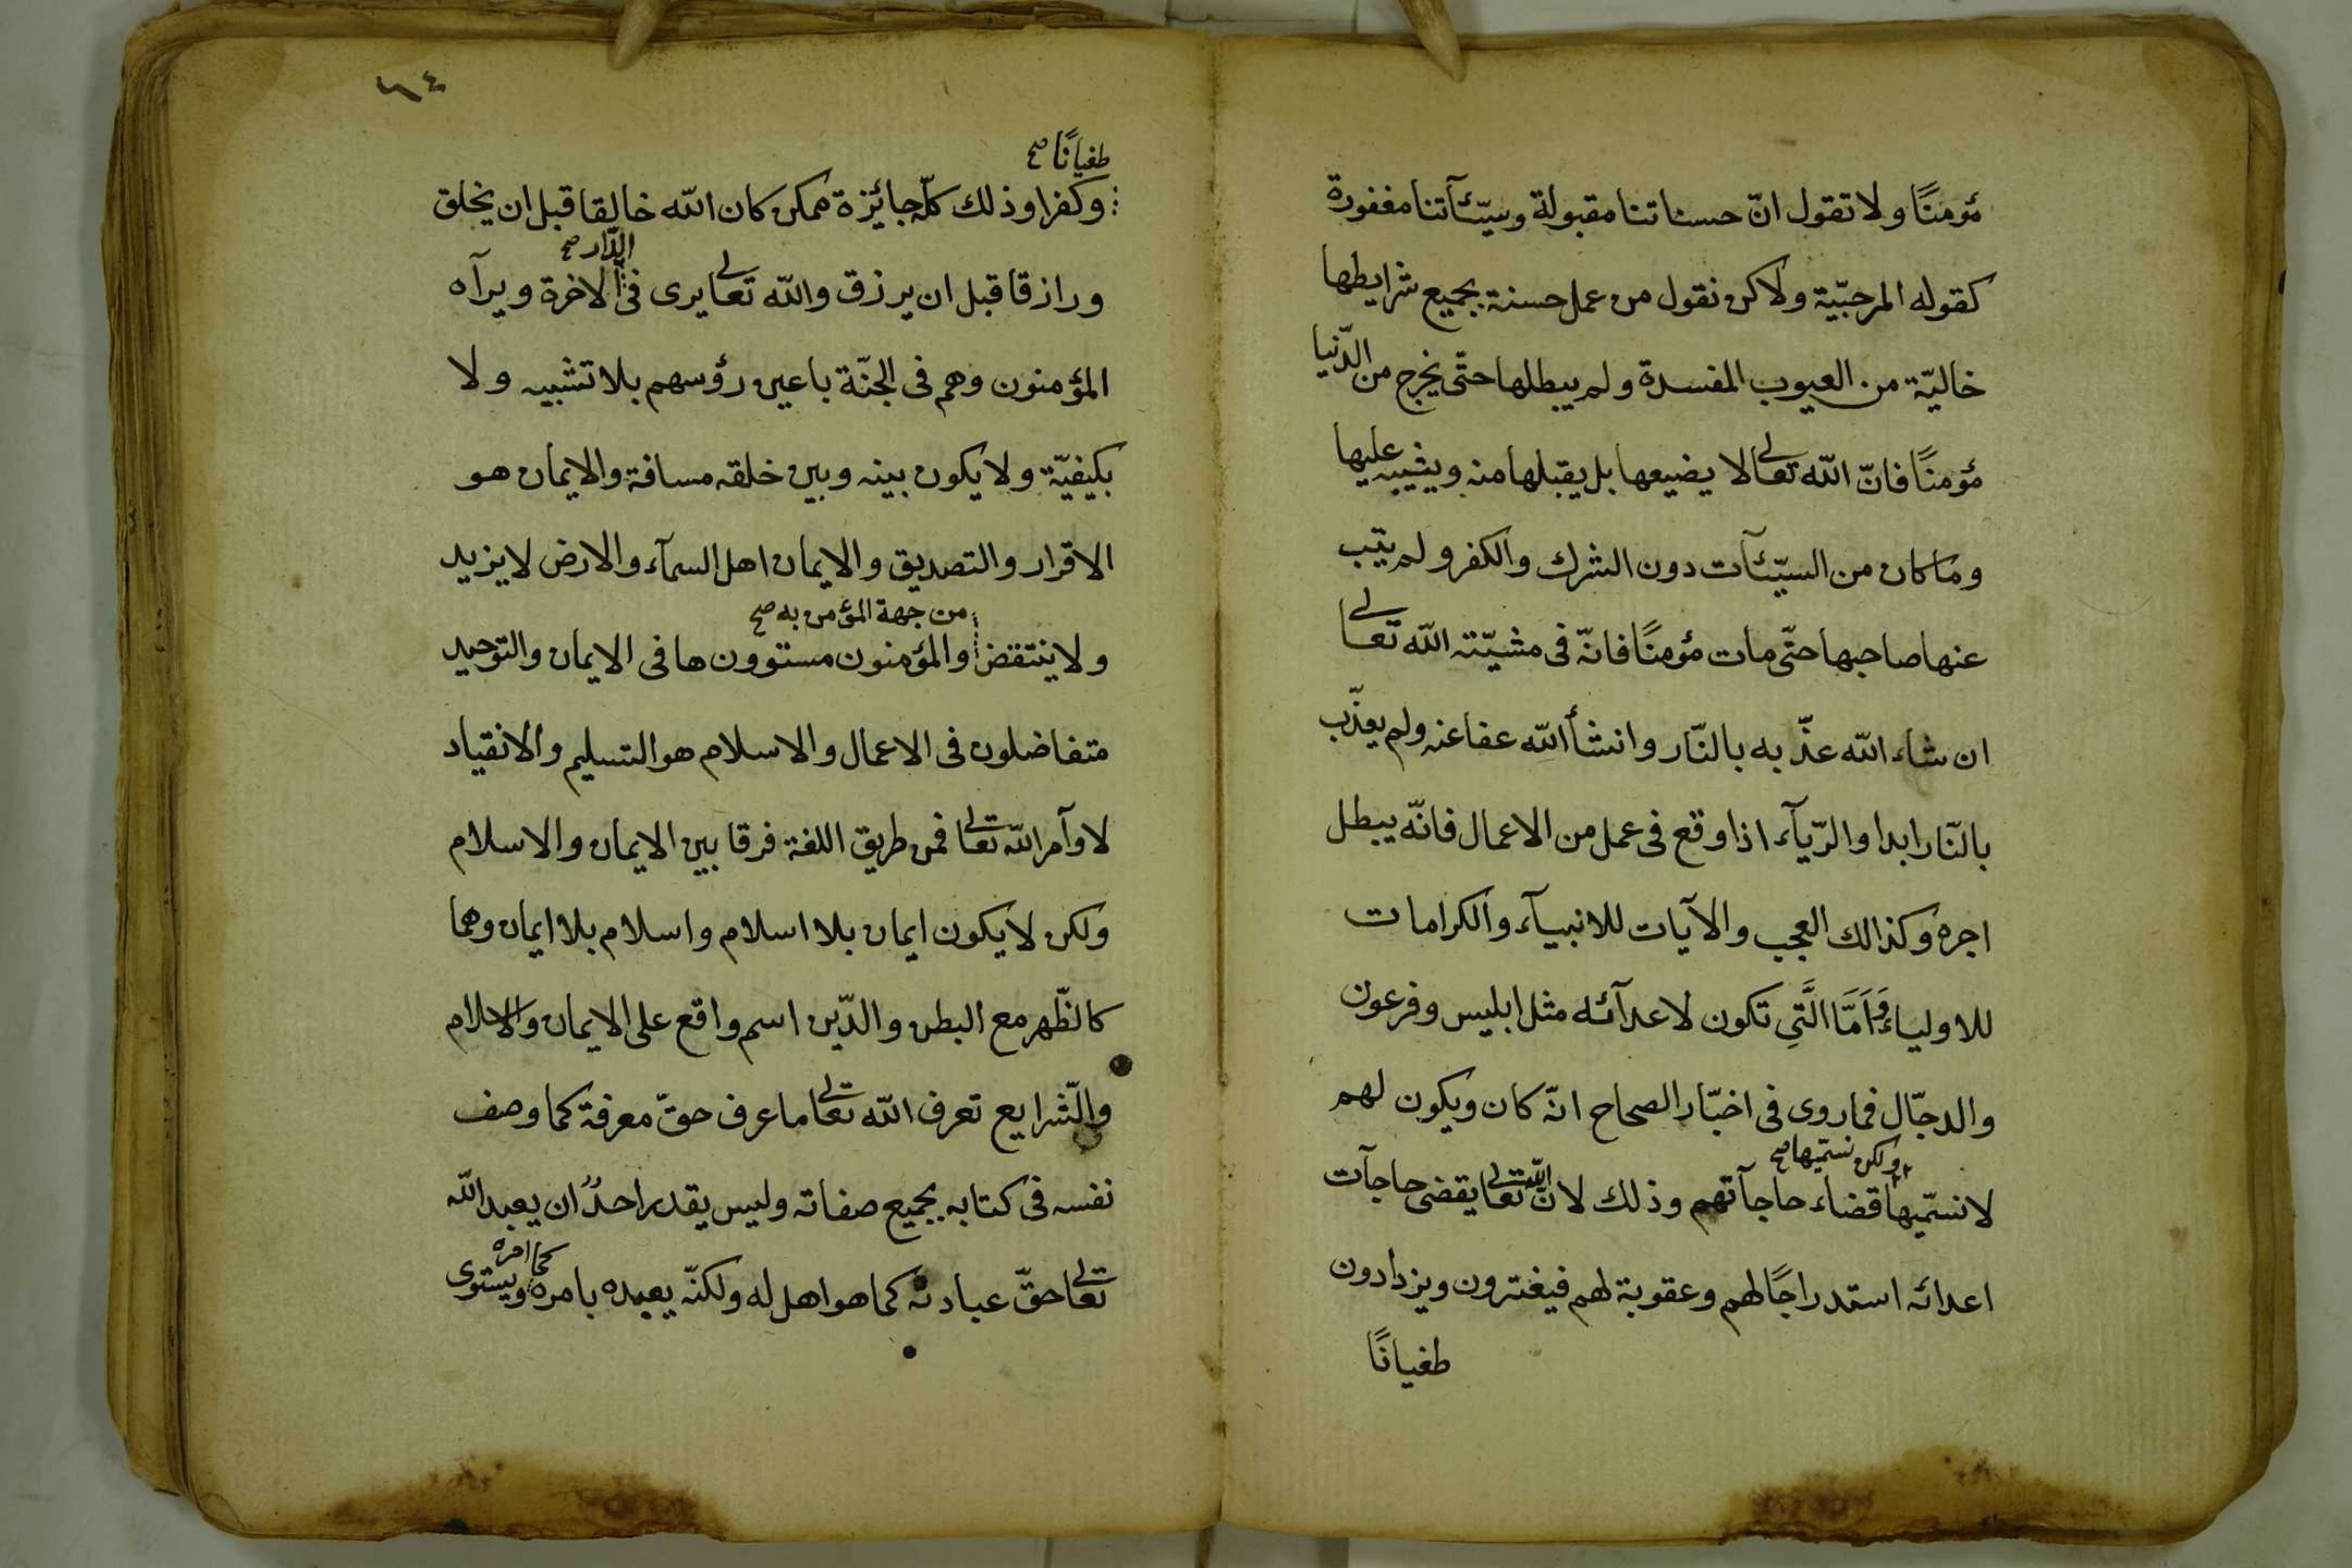 مؤمنًا ولا تقول انّ حسناتنا مقبولة وسيّئآتنا مغفورة
كقوله المرجبّية ولاكن نقول من عمل حسنة بجميع شرايطها
خاليّة من العيوب المفسدة ولم يبطلها حتّى يخرج من الدّنيا
مؤمنًا فانّ الله تعالى لا يضيعها بل يقبلها منه ويثيبه عليها
وما كان من السيّئآت دون الشرك والكفر ولم يتب
عنها صاحبها حتّى مات مؤمنًا فانّه فى مشيّته الله تعالى
ان شاء الله عذّبه بالنّار وانشأ الله عفا عنه ولم يعذّب
بالنّار ابدا والرّيآء اذا وقع فى عمل من الاعمال فانّه يبطل
اجره وكذالك العجب والآيات للانبيآء والكرامات
للاولياء وَاَمَّا الَّتِي تكون لاعدآئه مثل ابليس وفرعون
والدجّال فما روى فى اخبّار الصحاح انّه كان ويكون لهم
ولكن نسمّيها صح
لا نسمّيها قضاء حاجآتهم وذلك لانّ الله تعالى يقضى حاجآت
اعدائه استدراجًا لهم وعقوبة لهم فيغترون ويزدادون
طغيانًا
٦٤
طغيانًا صح
وكفرا وذلك كلّه جائزة ممكن كان الله خالقا قبل ان يخلق
الدّار صح
ورازقا قبل ان يرزق والله تعالى يرى فى الاخرة ويرآه
المؤمنون وهم فى الجنّة باعين رؤسهم بلا تشبيه ولا
بكيفيّة ولا يكون بينه وبين خلقه مسافة والايمان هو
الاقرار والتصديق والايمان اهل السمآء والارض لا يزيد
من جهة المؤمن به صح
ولا ينتقض والمؤمنون مستوون ها فى الايمان والتوحيد
متفاضلون فى الاعمال والاسلام هو التسليم والانقياد
لاوآمر الله تعالى فمن طريق اللغة فرقا بين الايمان والاسلام
ولكن لا يكون ايمان بلا اسلام واسلام بلا ايمان وهما
كالظّهر مع البطن والدّين اسم واقع على الايمان والاسلام
والشّرايع تعرف الله تعالى ما عرف حقّ معرفة كما وصف
نفسه فى كتابه بجميع صفاته وليس يقدر احدٌ ان يعبد الله
تعالى حقّ عبادته كما هو اهل له ولكنّه يعبده بامره كما امره ويستوى